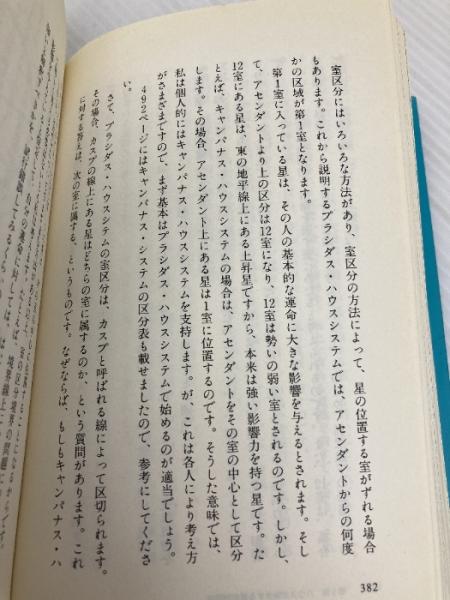 室区分にはいろいろな方法があり、室区分の方法によって、星の位置する室がずれる場合
もあります。これから説明するプラシダス・ハウスシステムでは、アセンダントからの何度
かの区域が第1室となります。
第1室に入っている星は、その人の基本的な運命に大きな影響を与えるとされます。そし
て、アセンダントより上の区分は12室になり、12室は勢いの弱い室とされるのです。しかし、
12室にある星は、東の地平線上にある上昇星ですから、本来は強い影響力を持つ星です。た
とえば、キャンパナス・ハウスシステムの場合は、アセンダントをその室の中心として区分
します。その場合、アセンダント上にある星は1室に位置するのです。そうした意味では、
私は個人的にはキャンパナス・ハウスシステムを支持します。が、これは各人により考え方
がさまざまですので、まず基本はプラシダス・ハウスシステムで始めるのが適当でしょう。
492ページにはキャンパナス・システムの区分表も載せましたので、参考にしてくださ
い。
さて、プラシダス・ハウスシステムの室区分は、カスプと呼ばれる線によって区切られます。
その場合、カスプの線上にある星はどちらの室に属するのか、という質問があります。これ
に対する答えは、次の室に属する、というものです。なぜならば、もしもキャンパナス・ハ
382